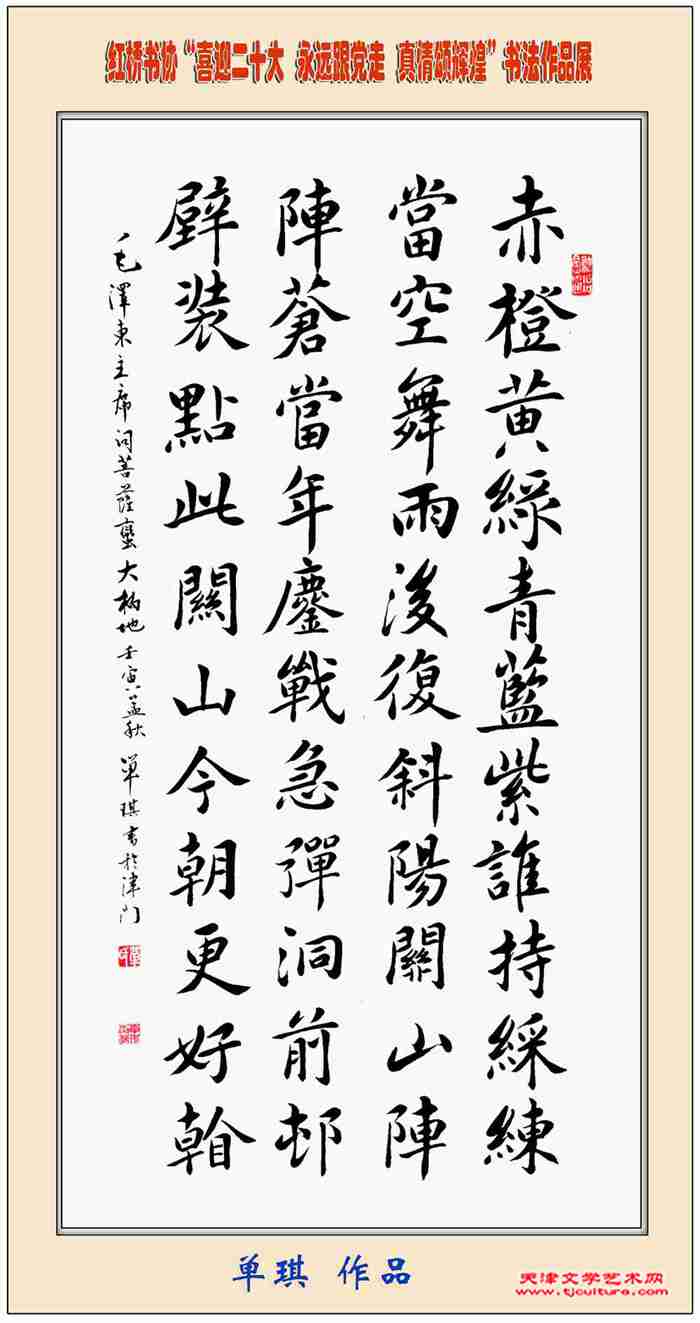 红桥书协“喜迎二十大 永远跟党走 真情颂辉煌”书法作品展
赤橙黄綠青藍紫誰持綵練
當空舞雨後復斜陽關山陣
陣蒼當年鏖戰急彈洞前邨
壁裝點此關山今朝更好看
毛澤東主席词菩薩蠻大柏地壬寅孟秋單琪書於津门
单琪 作品
天津文学艺术网
www.tjculture.com